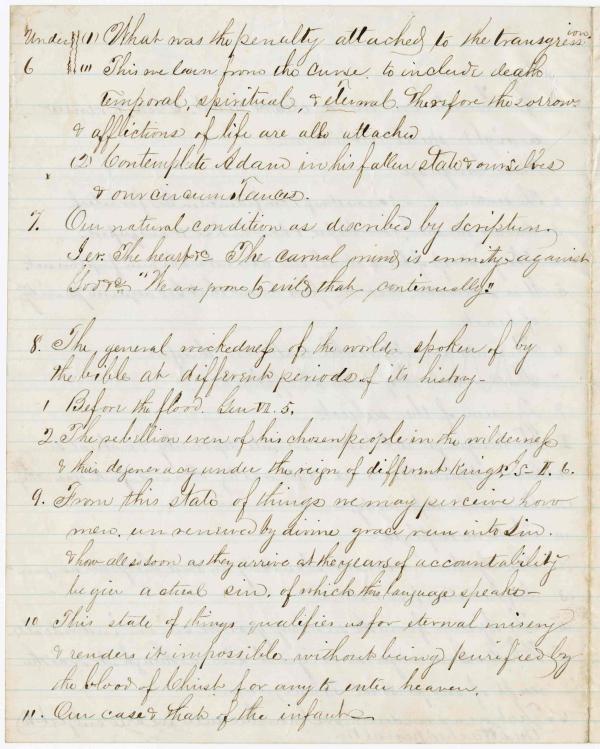 Under (1) What was the penalty attached to the transgression.
6 " This we learn from the curse to include death
temporal, spiritual, & eternal. Therefore the sorrows
& afflictions of life are also attached
(2) Contemplate Adam in his fallen state & ourselves
& our circumstances.
7. Our natural condition as described by scripture.
Jer. The heart &c The carnal mind is enmity against
God &c "We are prone to evil & that continually."
8. The general wickedness of the world spoken of by
the bible at different periods of its history-
1 Before the flood. Gen VI. 5.
2. The rebellion even of his chosen people in the wilderness
& their degeneracy under the reign of different Kings. II. 6.
9. From this state of things we may perceive how
men, unrenewed by divine grace run into sin.
& how all so soon as they arrive at the years of accountability
begin actual sin, of which this language speaks-
10 This state of things qualifies us for eternal misery
& renders it impossible without being purified by
the blood of Christ for any to enter heaven.
11. Our case & that of the infants